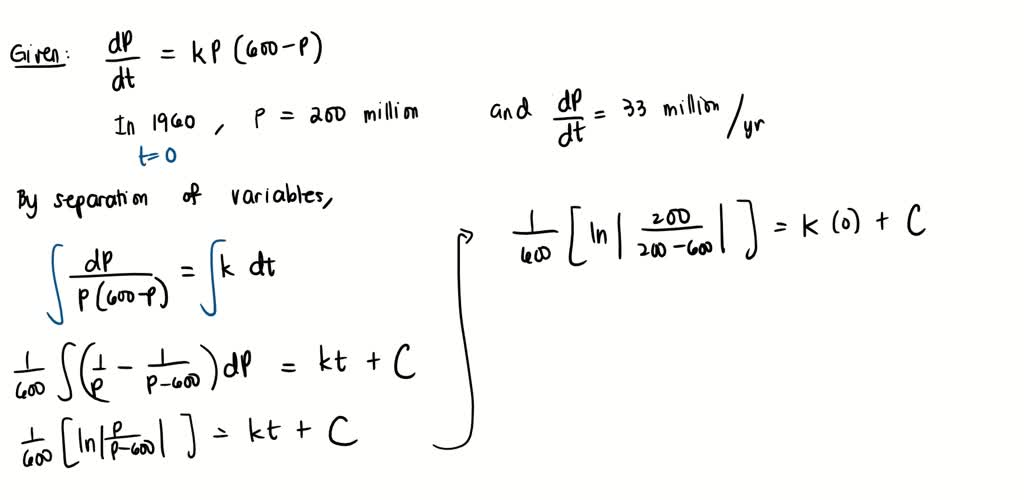 Given: dP/dt = kP (600-P)
In 1960, P = 200 million and dP/dt = 33 million/yr
t=0
By separation of variables,
∫ dP/(P(600-P)) = ∫ k dt
1/600 ∫ (1/P - 1/(P-600)) dP = kt + C
1/600 [ln|P/(P-600)|] = kt + C
1/600 [ln|200/(200-600)|] = k(0) + C